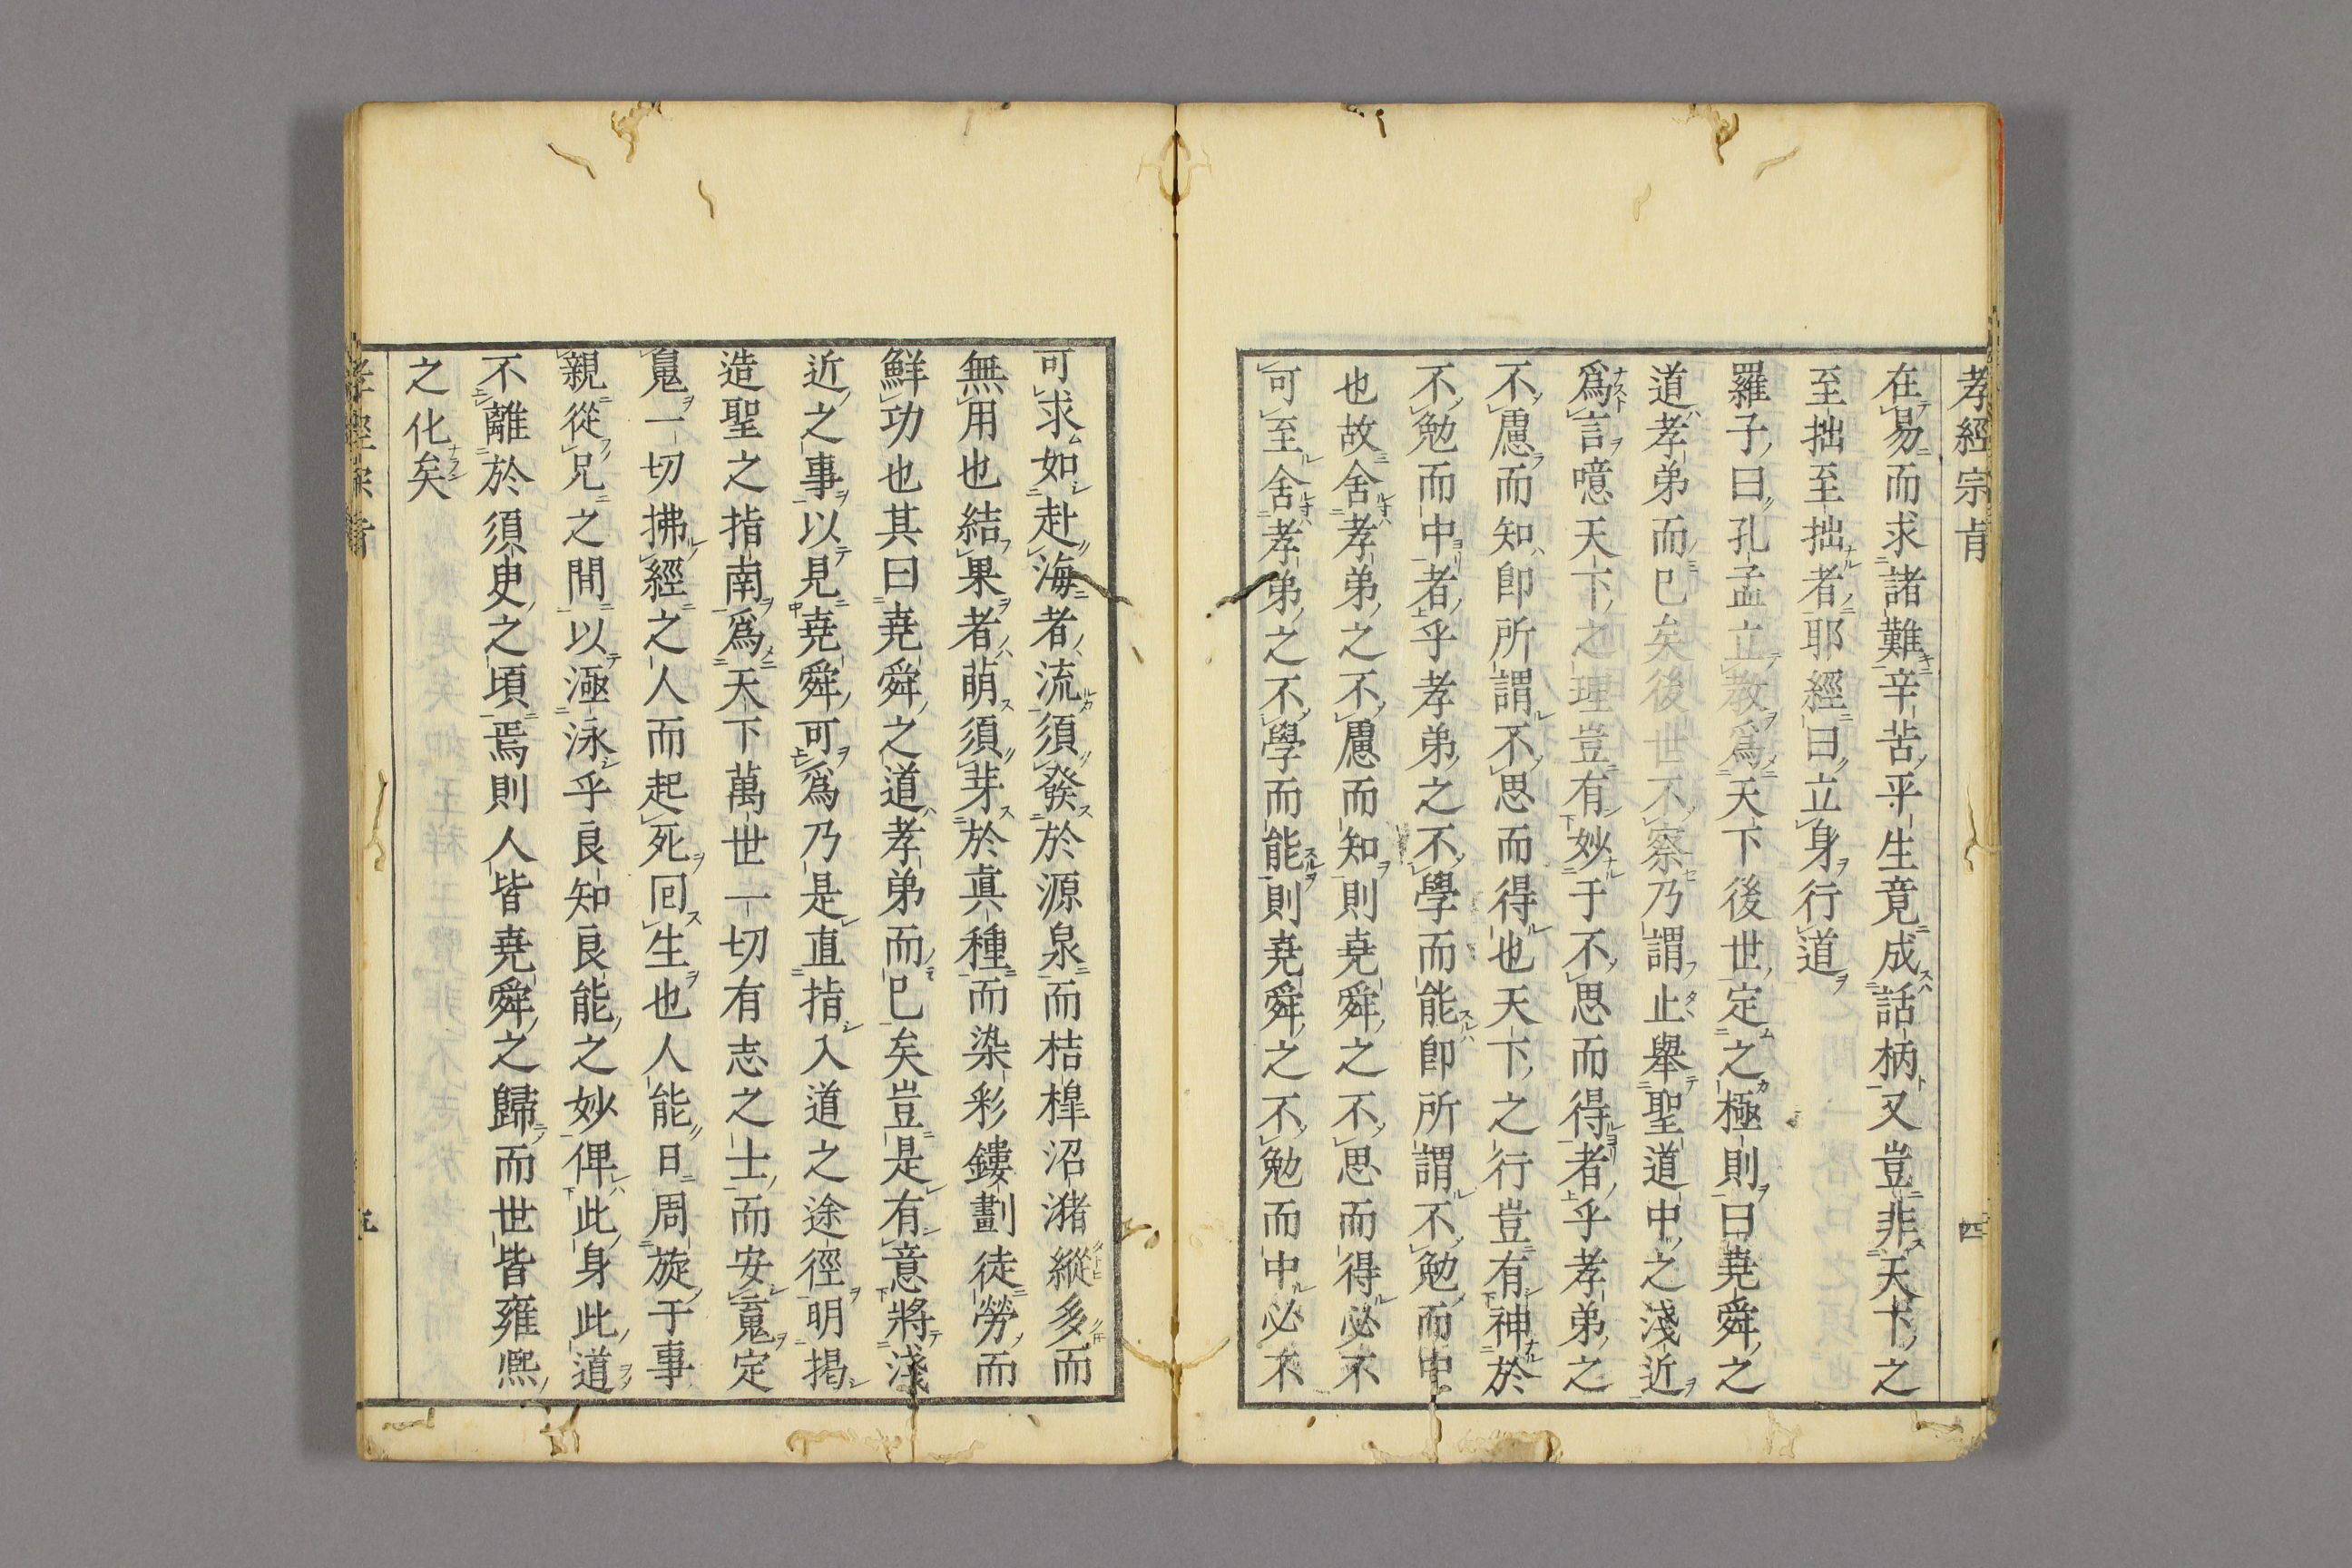 孝經宗旨
四
在易而求諸難辛苦乎生竟成話柄又豈非天下之
至拙至拙者耶經曰立身行道
羅子曰孔孟立教爲天下後世定之極則曰堯舜之
道孝弟而已矣後世不察乃謂止舉聖道中之淺近
爲言噫天下之理豈有妙于不思而得者乎孝弟之
不慮而知卽所謂不思而得也天下之行豈有神於
不勉而中者乎孝弟之不學而能卽所謂不勉而中
也故舍孝弟之不慮而知則堯舜之不思而得必不
可至舍孝弟之不學而能則堯舜之不勉而中必不
可求如赴海者流須發於源泉而桔槹沼瀦縱多而
無用也結果者萌須芽於眞種而染彩鏤劃徒勞而
鮮功也其曰堯舜之道孝弟而已矣豈是有意將淺
近之事以見堯舜可爲乃是直指入道之途徑明揭
造聖之指南爲天下萬世一切有志之士而安䰟定
䰟一切拂經之人而起死回生也人能日周旋于事
親從兄之間以涵泳乎良知良能之妙俾此身此道
不離於須臾之頃焉則人皆堯舜之歸而世皆雍熈
之化矣